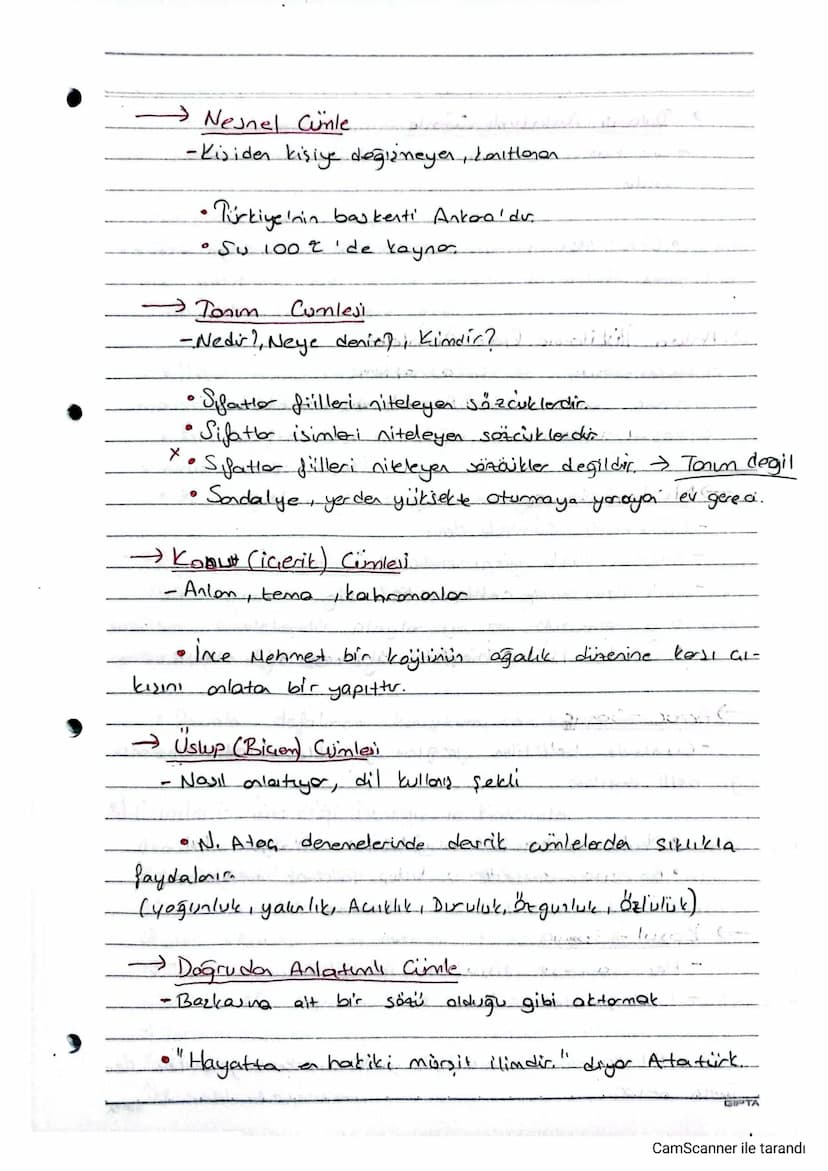 → Nesnel Cümle
- Kişiden kişiye değişmeyen, kanıtlanan
• Türkiye'nin başkenti Ankara'dır.
• Su 100 ℃ 'de kaynar.
→ Tanım Cümlesi
- Nedir?, Neye denir?, Kimdir?
• Sıfatlar fiilleri niteleyen sözcüklerdir.
• Sıfatlar isimleri niteleyen sözcüklerdir.
x • Sıfatlar fiilleri niteleyen sözcükler değildir. → Tanım değil
• Sandalye, yerden yüksekte oturmaya yarayan ev gereci.
→ Konu (içerik) Cümlesi
- Anlam, tema, kahramanlar
• İnce Mehmet bir köylünün ağalık düzenine karşı çı-
kışını anlatan bir yapıttır.
→ Üslup (Biçem) Cümlesi
- Nasıl anlatıyor, dil kullanış şekli
• N. Ataç denemelerinde devrik cümlelerden sıklıkla
faydalanır.
(yoğunluk, yalınlık, Açıklık, Duruluk, Özgünlük, Özlülük)
→ Doğrudan Anlatımlı Cümle
- Başkasına ait bir sözü olduğu gibi aktarmak
• "Hayatta en hakiki mürşit ilimdir." diyor Atatürk.
GIPTA
CamScanner ile tarandı